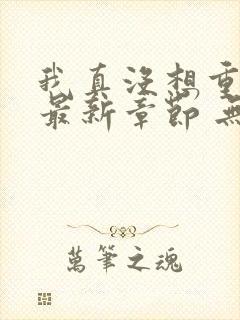 我真没想重
最新章節 無
萬筆之魂